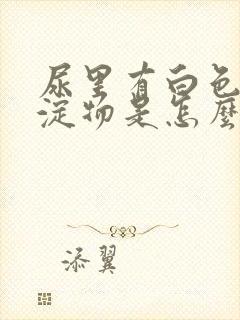 尿里有白色
淀物是怎麼
添翼